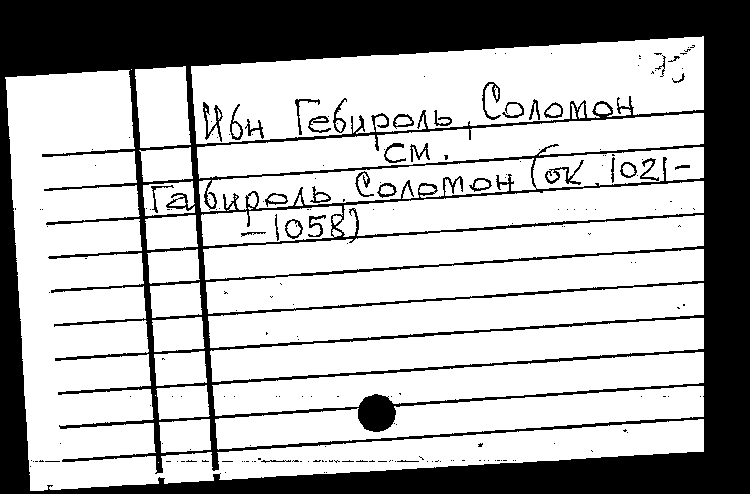 Ибн Гебироль, Соломон
см.
Габироль, Соломон (ок. 1021-
-1058)